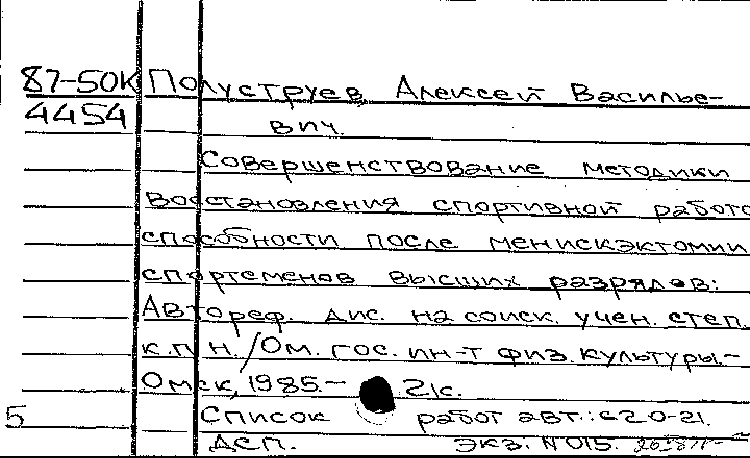 87-50К Полуструев Алексей Василье-
4454 вич.
Совершенствование методики
восстановления спортивной работо
способности после менискэктомии
спортсменов высших разрядов:
Автореф. дис. на соиск. учен. степ.
к.п.н. /Ом. гос. ин-т физ. культуры.-
Омск, 1985.- 21с.
5 Список работ авт.: с20-21.
ДСП. экз: N015.